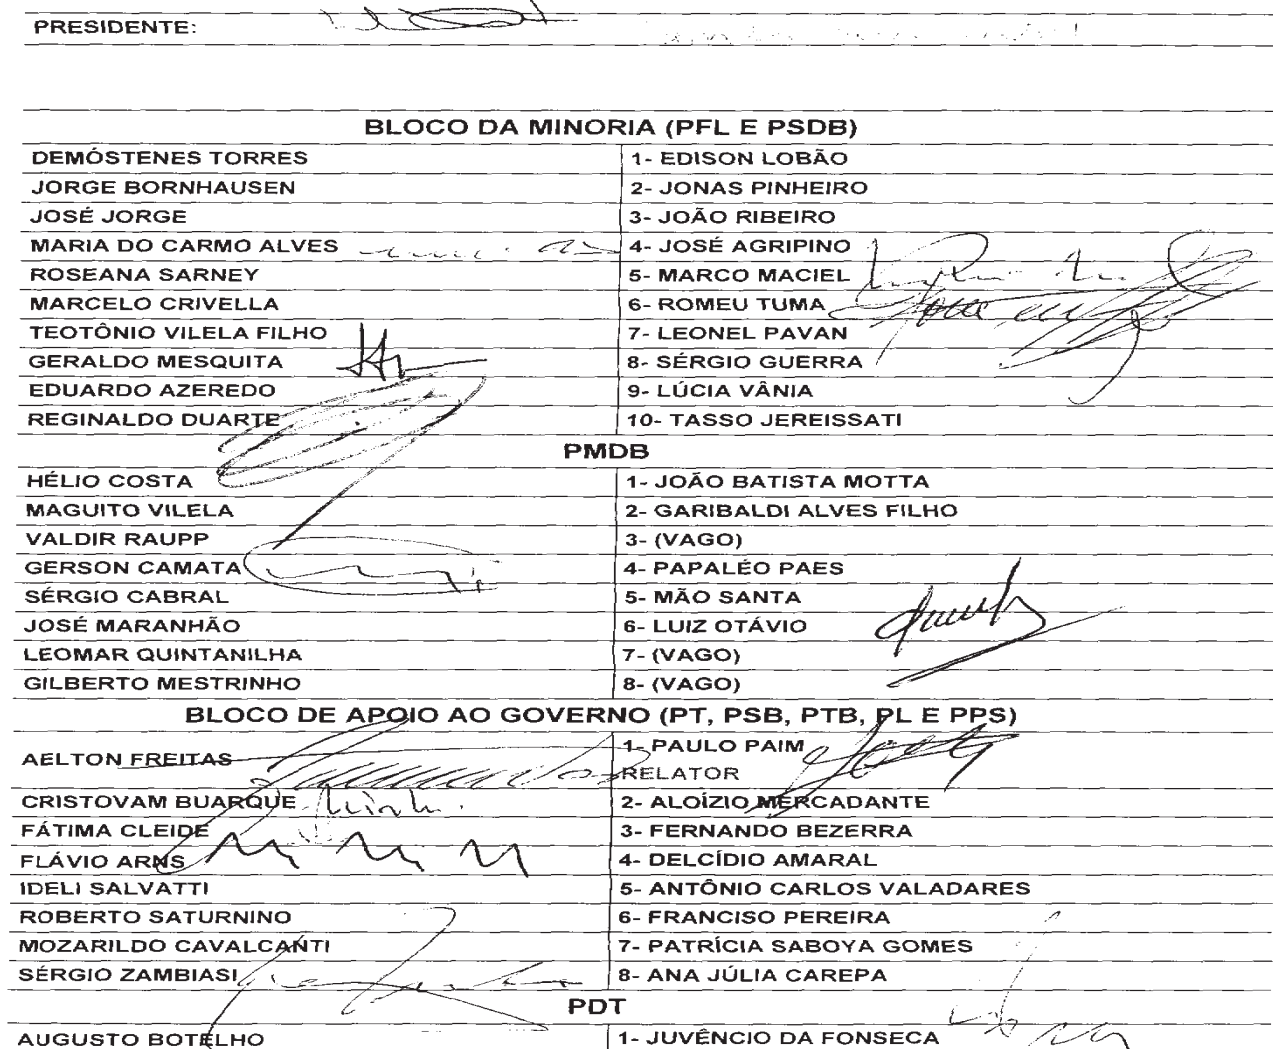 PRESIDENTE:
BLOCO DA MINORIA (PFL E PSDB)
DEMÓSTENES TORRES 1- EDISON LOBÃO
JORGE BORNHAUSEN 2- JONAS PINHEIRO
JOSÉ JORGE 3- JOÃO RIBEIRO
MARIA DO CARMO ALVES 4- JOSÉ AGRIPINO
ROSEANA SARNEY 5- MARCO MACIEL
MARCELO CRIVELLA 6- ROMEU TUMA
TEOTÔNIO VILELA FILHO 7- LEONEL PAVAN
GERALDO MESQUITA 8- SÉRGIO GUERRA
EDUARDO AZEREDO 9- LÚCIA VÂNIA
REGINALDO DUARTE 10- TASSO JEREISSATI
PMDB
HÉLIO COSTA 1- JOÃO BATISTA MOTTA
MAGUITO VILELA 2- GARIBALDI ALVES FILHO
VALDIR RAUPP 3- (VAGO)
GERSON CAMATA 4- PAPALÉO PAES
SÉRGIO CABRAL 5- MÃO SANTA
JOSÉ MARANHÃO 6- LUIZ OTÁVIO
LEOMAR QUINTANILHA 7- (VAGO)
GILBERTO MESTRINHO 8- (VAGO)
BLOCO DE APOIO AO GOVERNO (PT, PSB, PTB, PL E PPS)
AELTON FREITAS 1- PAULO PAIM
RELATOR
CRISTOVAM BUARQUE 2- ALOÍZIO MERCADANTE
FÁTIMA CLEIDE 3- FERNANDO BEZERRA
FLÁVIO ARNS 4- DELCÍDIO AMARAL
IDELI SALVATTI 5- ANTÔNIO CARLOS VALADARES
ROBERTO SATURNINO 6- FRANCISO PEREIRA
MOZARILDO CAVALCANTI 7- PATRÍCIA SABOYA GOMES
SÉRGIO ZAMBIASI 8- ANA JÚLIA CAREPA
PDT
AUGUSTO BOTELHO 1- JUVÊNCIO DA FONSECA